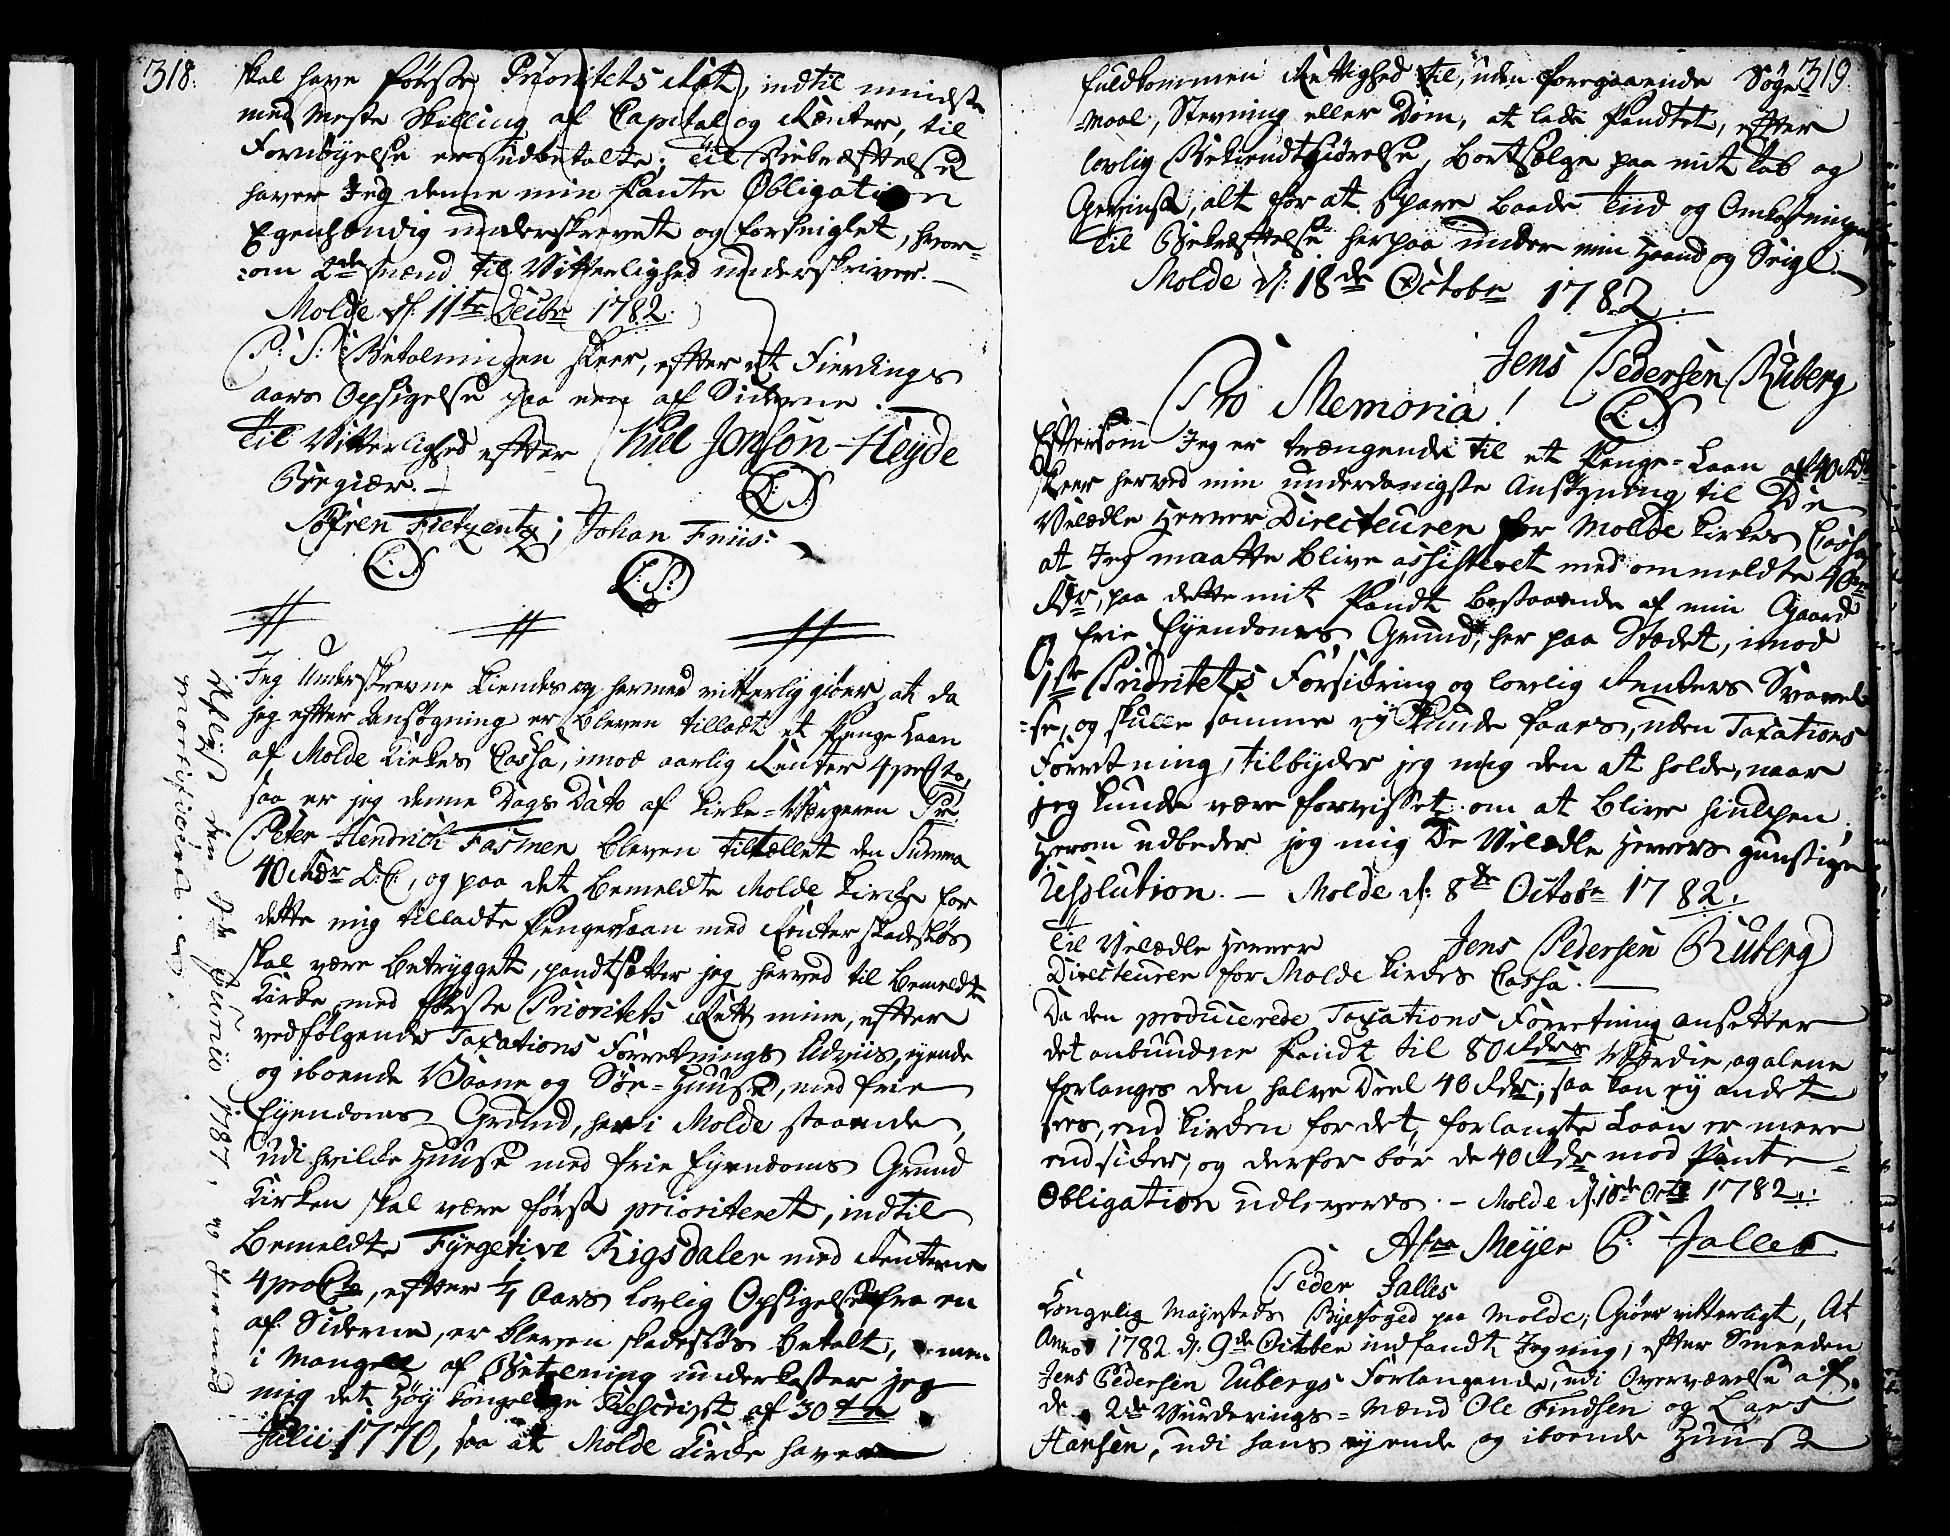 318.
skal have første Prioritets Ret, indtil mindste
med meste Skilling af Capital og Renter, til
Fornøyelse er udbetalte; Til Bekræftelse
haver Jeg denne min Pante Obligation
Egenhændig underskrevet og forseiglet, hvor-
:om 2de Mænd til Vitterlighed underskriver. —
Molde d: 11te Decbr 1782.
P: S: Betalningen skeer, efter et Fierdings
aars Opsigelse paa een af Siderne.
Til Vitterlighed efter Kiel Jonson Heyde
Begiær. — L: S.
Søfren Fietzentz; Johan Friis:
L: S. L: S:
Jeg Underskrevne Kiendes og hermed vitterlig giøer, at da
jeg efter Ansøgning er bleven tilladt et Penge Laan
af Molde Kirkes Cassa, imod aarlig Renter 4 proCto,
saa er jeg denne Dags Dato af Kirke-Værgeren Sr
Peter Hendrich Fasmer bleven tiltællet den Summa
40 Rdr D: C:, og paa det bemeldte Molde Kirke for
dette mig tilladte Penge Laan med Renter skadesløs
skal være betrygget, pandtsætter jeg herved til bemeldte
Kirke med første Prioritets Rett mine, efter
vedfølgende Taxations Forretnings Udviis, eyende
og iboende Vaane og Søe-Huuse, med frie
Eyendoms Grund, her i Molde staaende,
udi hvilke Huuse med frie Eyendoms Grund
Kirken skal være først prioriteret, indtil
bemeldte Fyrgetive Rigsdaler med Renterne
4 proCto, efter 1/4 Aars lovlig Opsigelse fra en
af Siderne, er bleven skadesløs betalt, men
i Mangel af Betalning underkaster jeg
mig det Høy Kongelige Rescript af 30te
Julii 1770, saa at Molde Kirke haver
Aflyst den Junii 1787, og hermed
mortificeret.
319.
fuldkommen Rettighed til, uden foregaaende Søge-
-maal, Stevning eller Dom, at lade Pandtet, efter
lovlig Bekiendtgiørelse, bortsælge paa mit Tab og
Gevinst, alt for at spare baade Tiid og Omkostninger
Til Bekræftelse herpaa under min Haand og Seigl. —
Molde d: 18de Octobr 1782.
Jens Pedersen Ruberg
L: S.
Pro Memoria!
Eftersom Jeg er trængende til et Penge-Laan af 40 Rdr
skeer herved min underdanigste Ansøgning til De
Velædle Herrer Directeurer for Molde Kirkes Cassa,
at Jeg maatte blive assisteret med ommeldte 40
Rdr, paa dette mit Pandt bestaaende af min Gaard
og frie Eyendoms Grund, her paa Stædet, imod
1ste Prioritets Forsikring og lovlig Renters Svarel-
-se, og skulle samme ey kunde faaes, uden Taxations
Forretning, tilbyder jeg mig den at holde, naar
jeg kunde være forvisset om at blive hiulpen;
Herom udbeder jeg mig De Velædle Herrers gunstige
Resolution. — Molde d: 8de Octobr 1782.
Til Velædle Herrer Jens Pedersen Ruberg
Directeurer for Molde Kirkes Cassa. —
Da den producerede Taxations Forretning ansetter
det anbudne Pandt til 80 Rdrs Værdie, og alene
forlanges den halve Deel 40 Rdr; saa kan ey andet
sees, end Kirken for det forlangte Laan er mere
end sikker, og derfor bør de 40 Rdr mod Pante-
Obligation udleveres. — Molde d: 18de Octr 1782.
Meyer P: Jalles
Peder Jalles
Kongelig Mayestets Byefoged paa Molde; Giøer vitterligt, At
Anno 1782 d: 9de October indfandt Jeg mig, efter Smeeden
Jens Pedersen Rubergs Forlangende, udi Overværelse af
de 2de Vurderings-Mænd Ole Findsen og Lars
Hansen, udi hans eyende og iboende Huuse